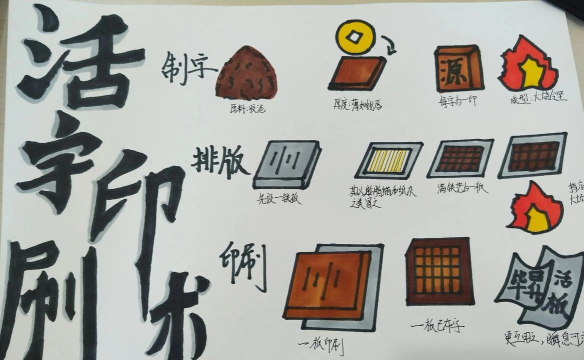 活字
印刷术
制字
原料:胶泥
厚度:薄如钱唇
源
每字为一印
成型,火烧令坚
排版
先设一铁板
之类冒之
满铁范为一板
印刷
一板印刷
一板已布字
毕昇
活板
更互用之,瞬息可